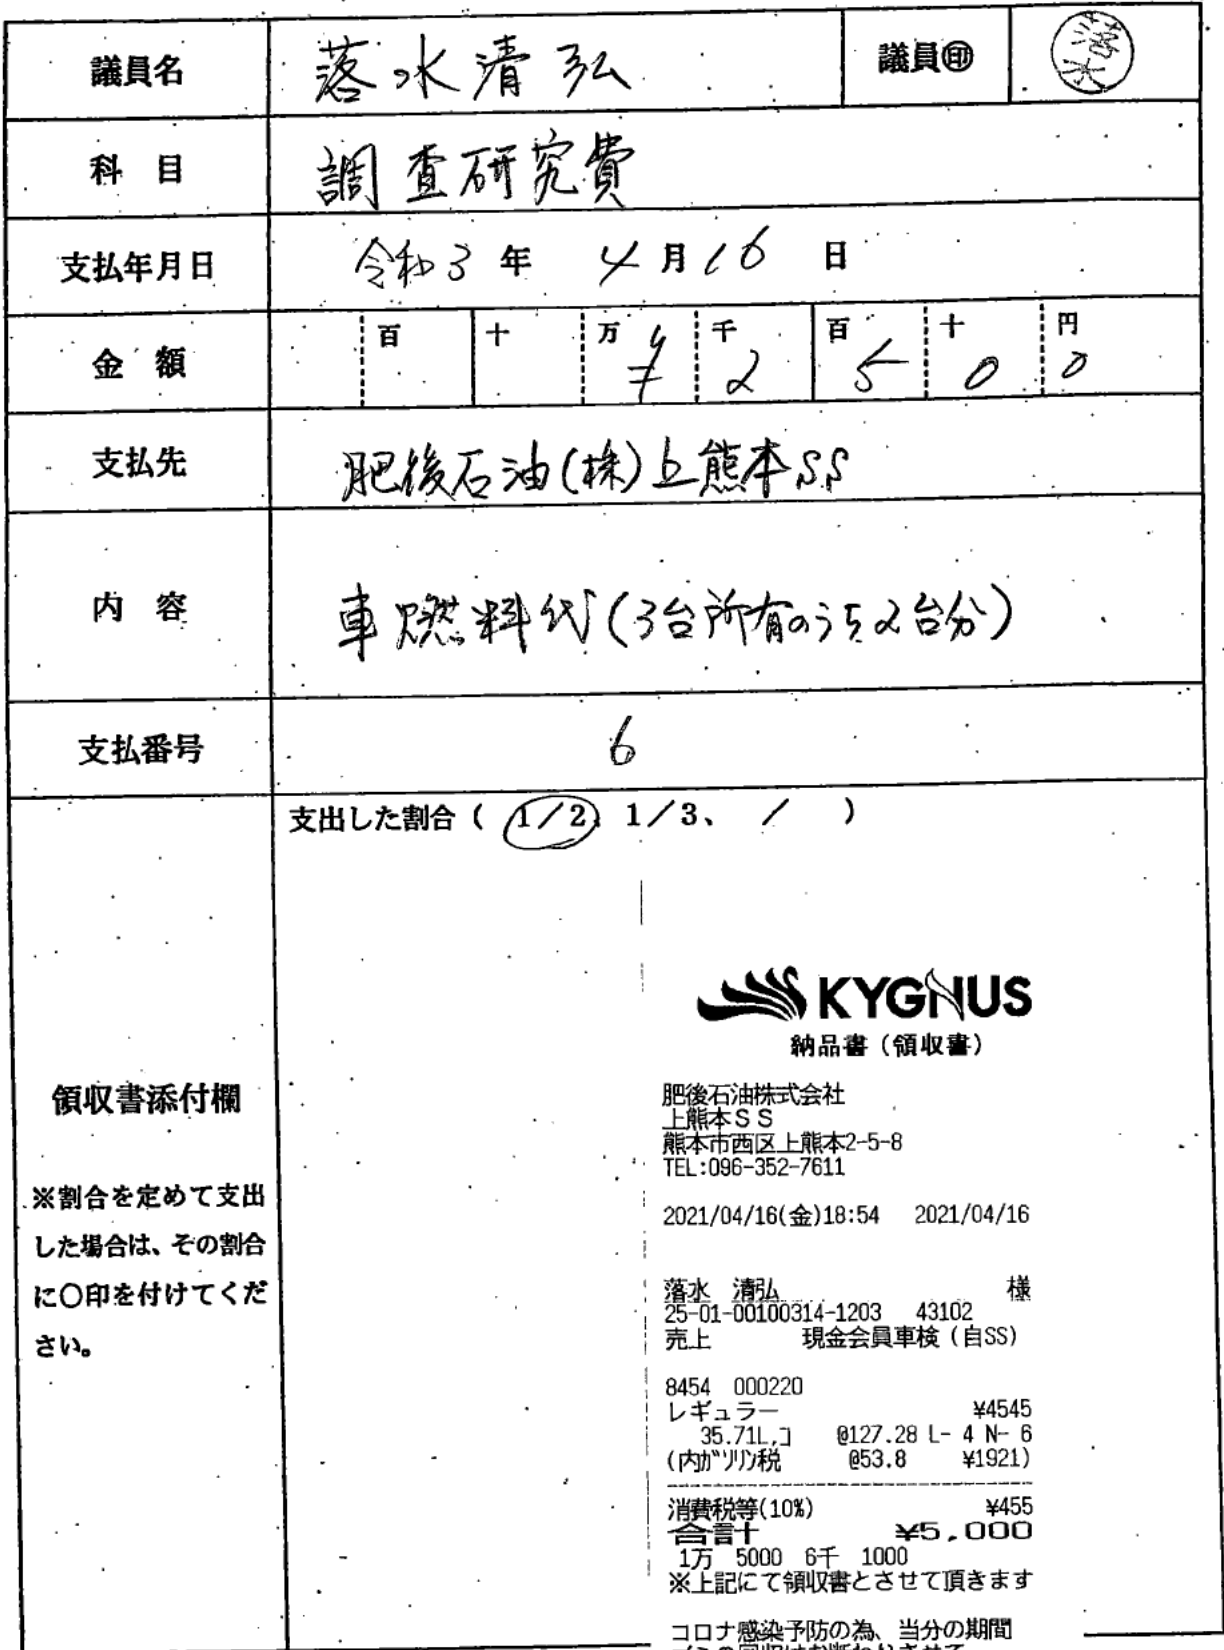 議員名 落水清弘 議員㊞ 落水
科 目 調査研究費
支払年月日 令和3年 4月16日
金 額 百 十 万 千 百 十 円
¥ 2 5 0 0
支払先 肥後石油(株)上熊本SS
内 容 車燃料代(3台所有のうち2台分)
支払番号 6
支出した割合( 1/2、1/3、 / )
領収書添付欄
※割合を定めて支出
した場合は、その割合
に〇印を付けてくだ
さい。
KYGNUS
納品書(領収書)
肥後石油株式会社
上熊本SS
熊本市西区上熊本2-5-8
TEL:096-352-7611
2021/04/16(金)18:54 2021/04/16
落水 清弘 様
25-01-00100314-1203 43102
売上 現金会員車検(自SS)
8454 000220
レギュラー ¥4545
35.71L,コ @127.28 L- 4 N- 6
(内ガソリン税 @53.8 ¥1921)
消費税等(10%) ¥455
合計 ¥5,000
1万 5000 6千 1000
※上記にて領収書とさせて頂きます
コロナ感染予防の為、当分の期間